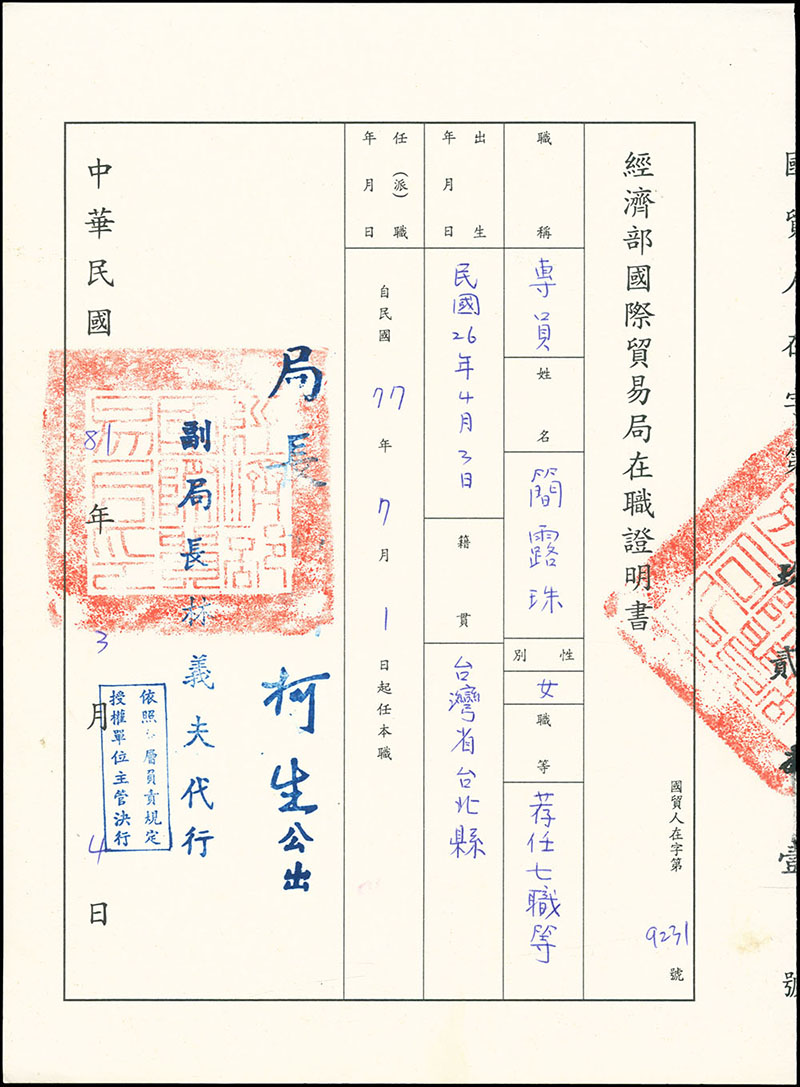 國貿人在字第
玖貳叁壹號
經濟部國際貿易局在職證明書
國貿人在字第9231號
職稱
專員
姓名
簡露珠
性別
女
職等
荐任七職等
出生年月日
民國26年4月3日
籍貫
台灣省台北縣
任(派)職年月日
自民國77年7月1日起任本職
局長 柯 生公出
副局長林義夫代行
依照 層員責規定
授權單位主管決行
中華民國81年3月4日